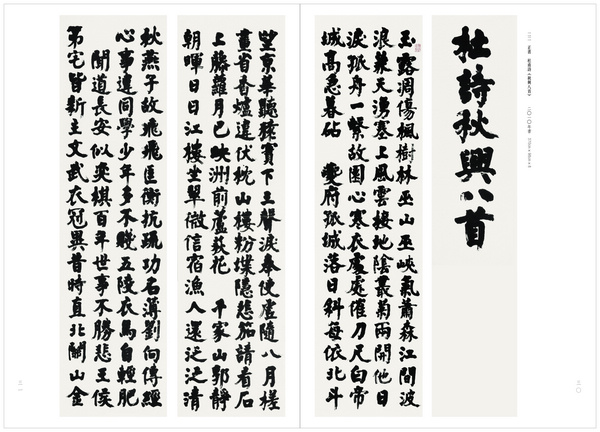 杜詩秋興八首
玉露凋傷楓樹林巫山巫峽氣蕭森江間波
浪兼天湧塞上風雲接地陰叢菊兩開他日
淚孤舟一繫故園心寒衣處處催刀尺白帝
城高急暮砧 夔府孤城落日斜每依北斗
三〇
望京華聽猿實下三聲淚奉使虛隨八月槎
畫省香爐違伏枕山樓粉堞隱悲笳請看石
上藤蘿月已映洲前蘆荻花 千家山郭靜
朝暉日日江樓坐翠微信宿漁人還泛泛清
秋燕子故飛飛匡衡抗疏功名薄劉向傳經
心事違同學少年多不賤五陵衣馬自輕肥
聞道長安似奕棋百年世事不勝悲王侯
第宅皆新主文武衣冠異昔時直北關山金
三一